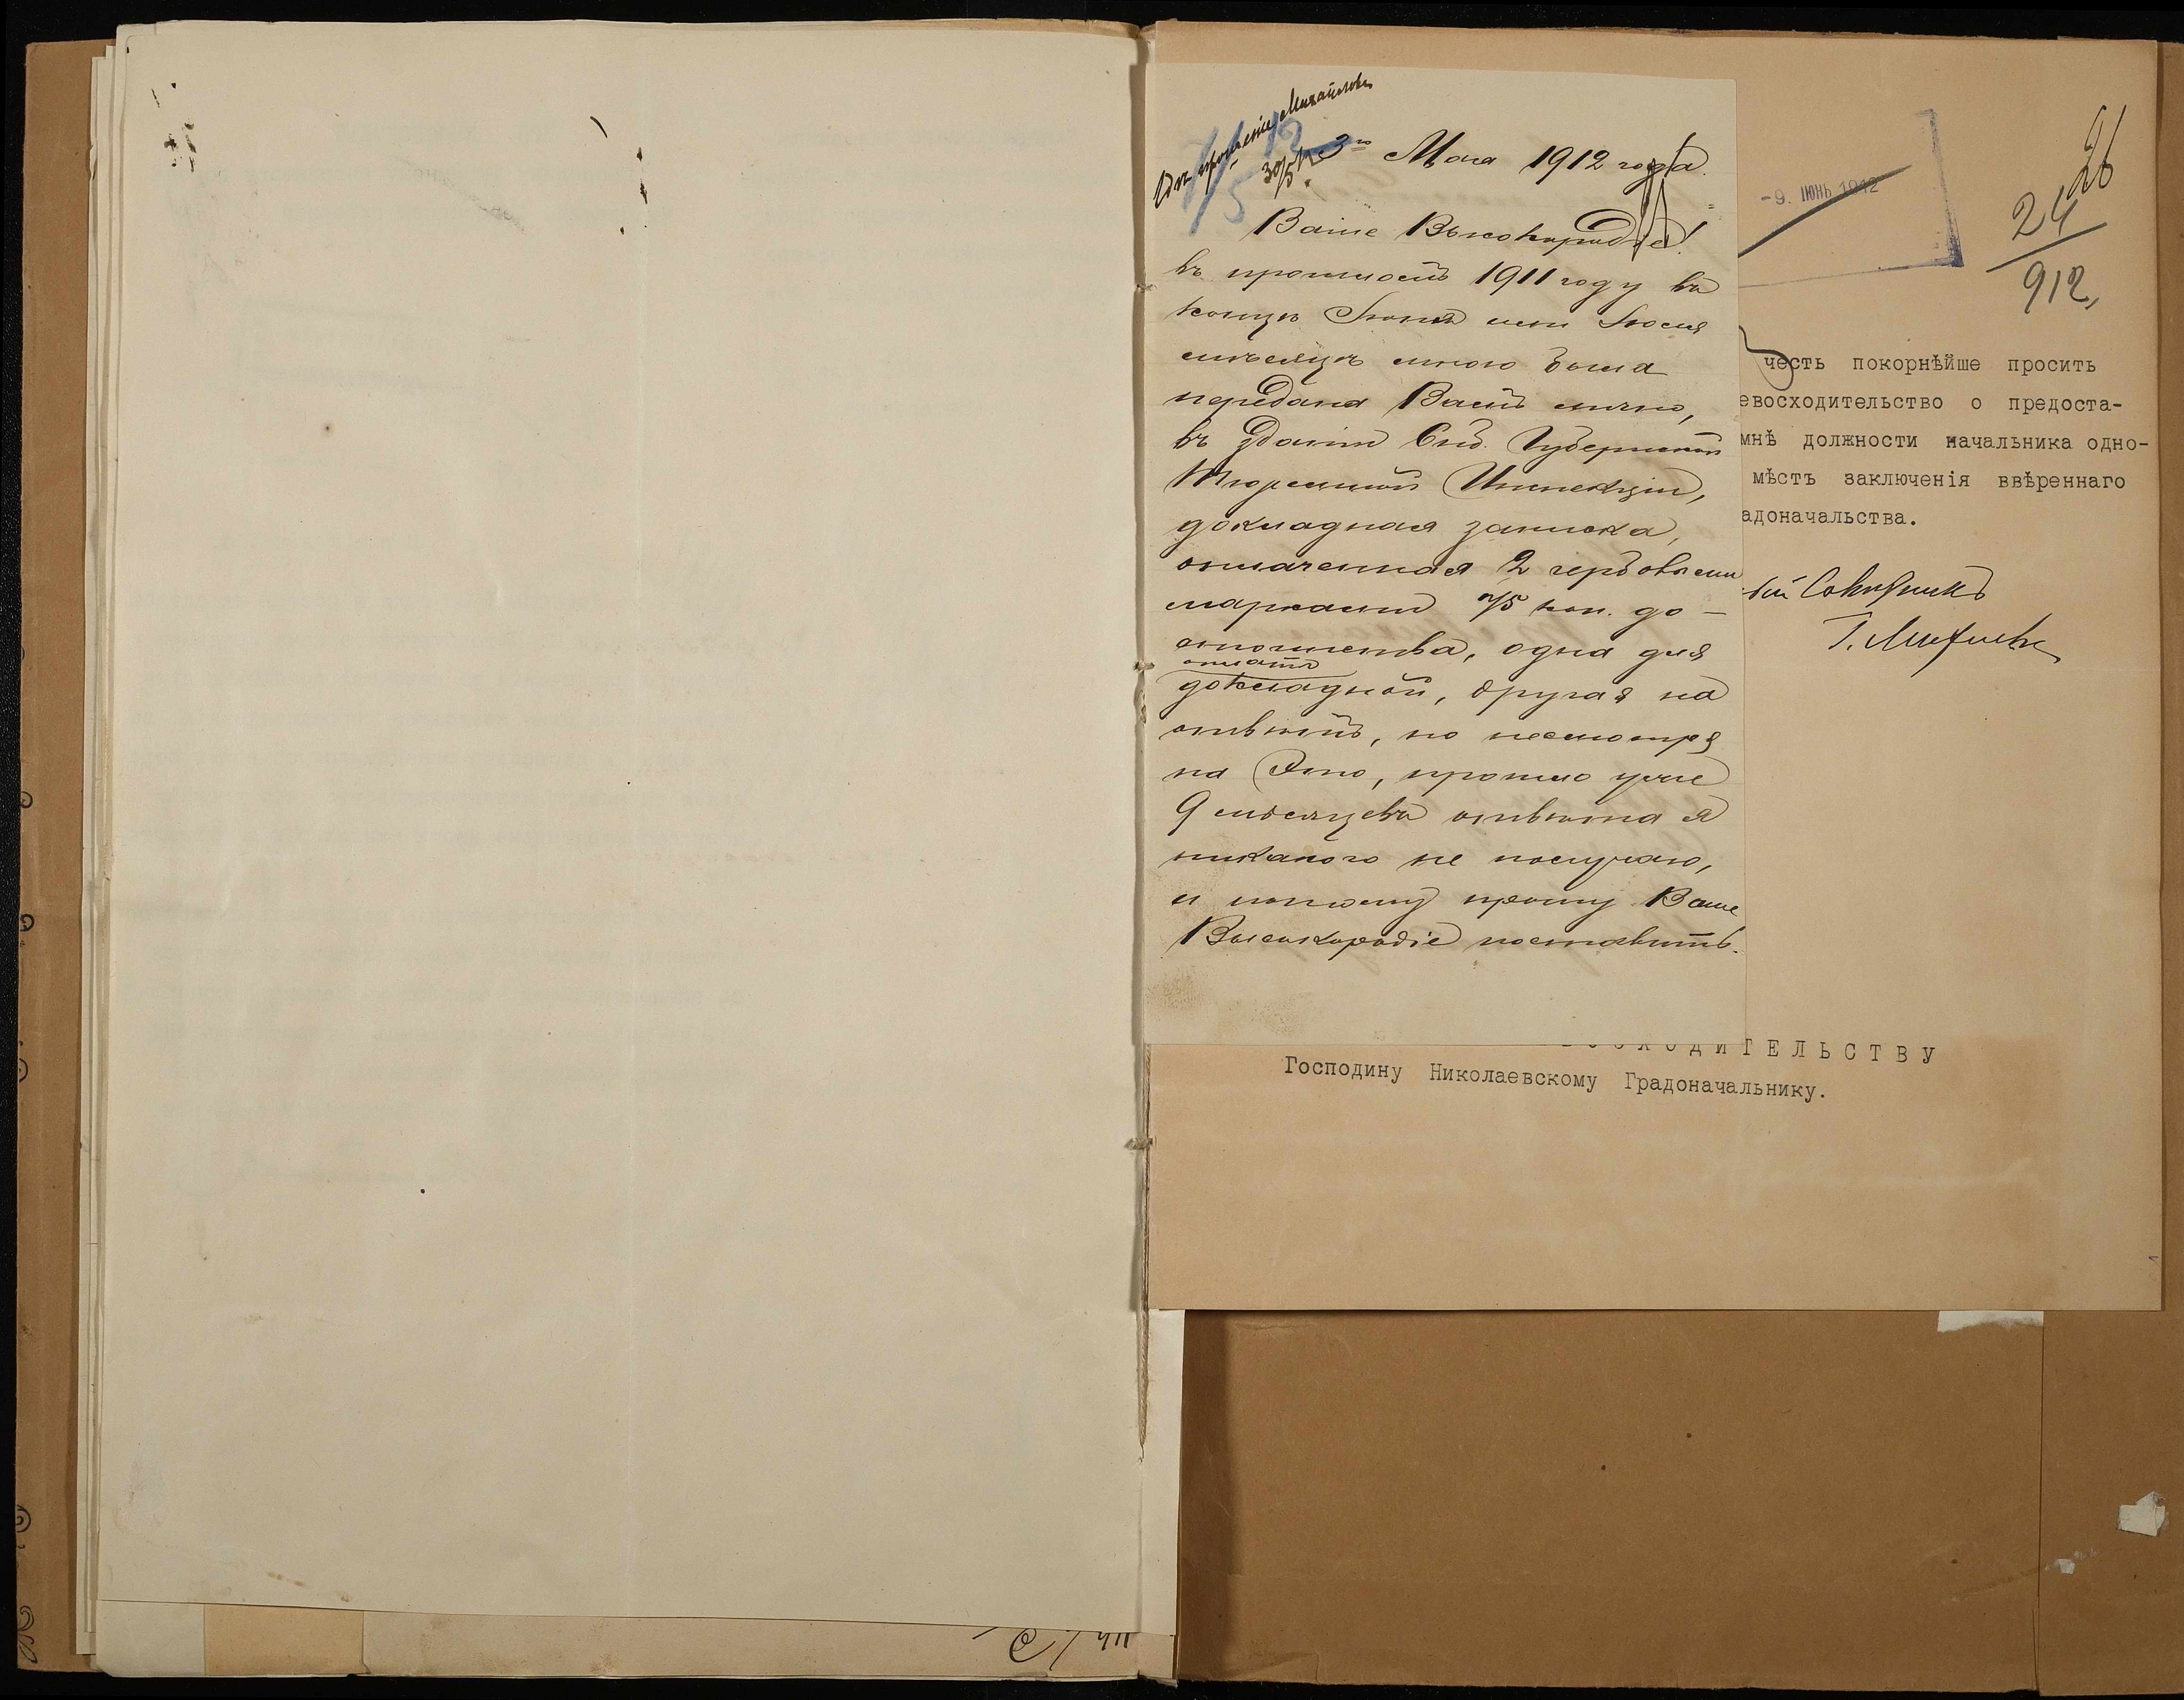 Мая 1912 года.
Ваше Высокородіе!
въ прошломъ 1911 году въ
концѣ Іюня или Іюля
мѣсяцѣ мною была
передана Вамъ лично,
въ зданіи Спб. Губернской
Тюремной Инспекціи,
докладная записка,
оплаченная 2 гербовыми
марками 75 коп. до-
стоинства, одна для
оплаты
докладной, другая на
отвѣтъ, но несмотря
на Это, прошло уже
9 мѣсяцевъ отвѣта я
никакого не получаю,
и потому прошу Ваше
Высокородіе поставить
-9. ІЮНЬ 1912
26
24
912
честь покорнѣйше просить
евосходительство о предоста-
мнѣ должности начальника одно-
мѣстъ заключенія ввѣреннаго
адоначальства.
ый Совѣтникъ
ОДИТЕЛЬСТВУ
Господину Николаевскому Градоначальнику.